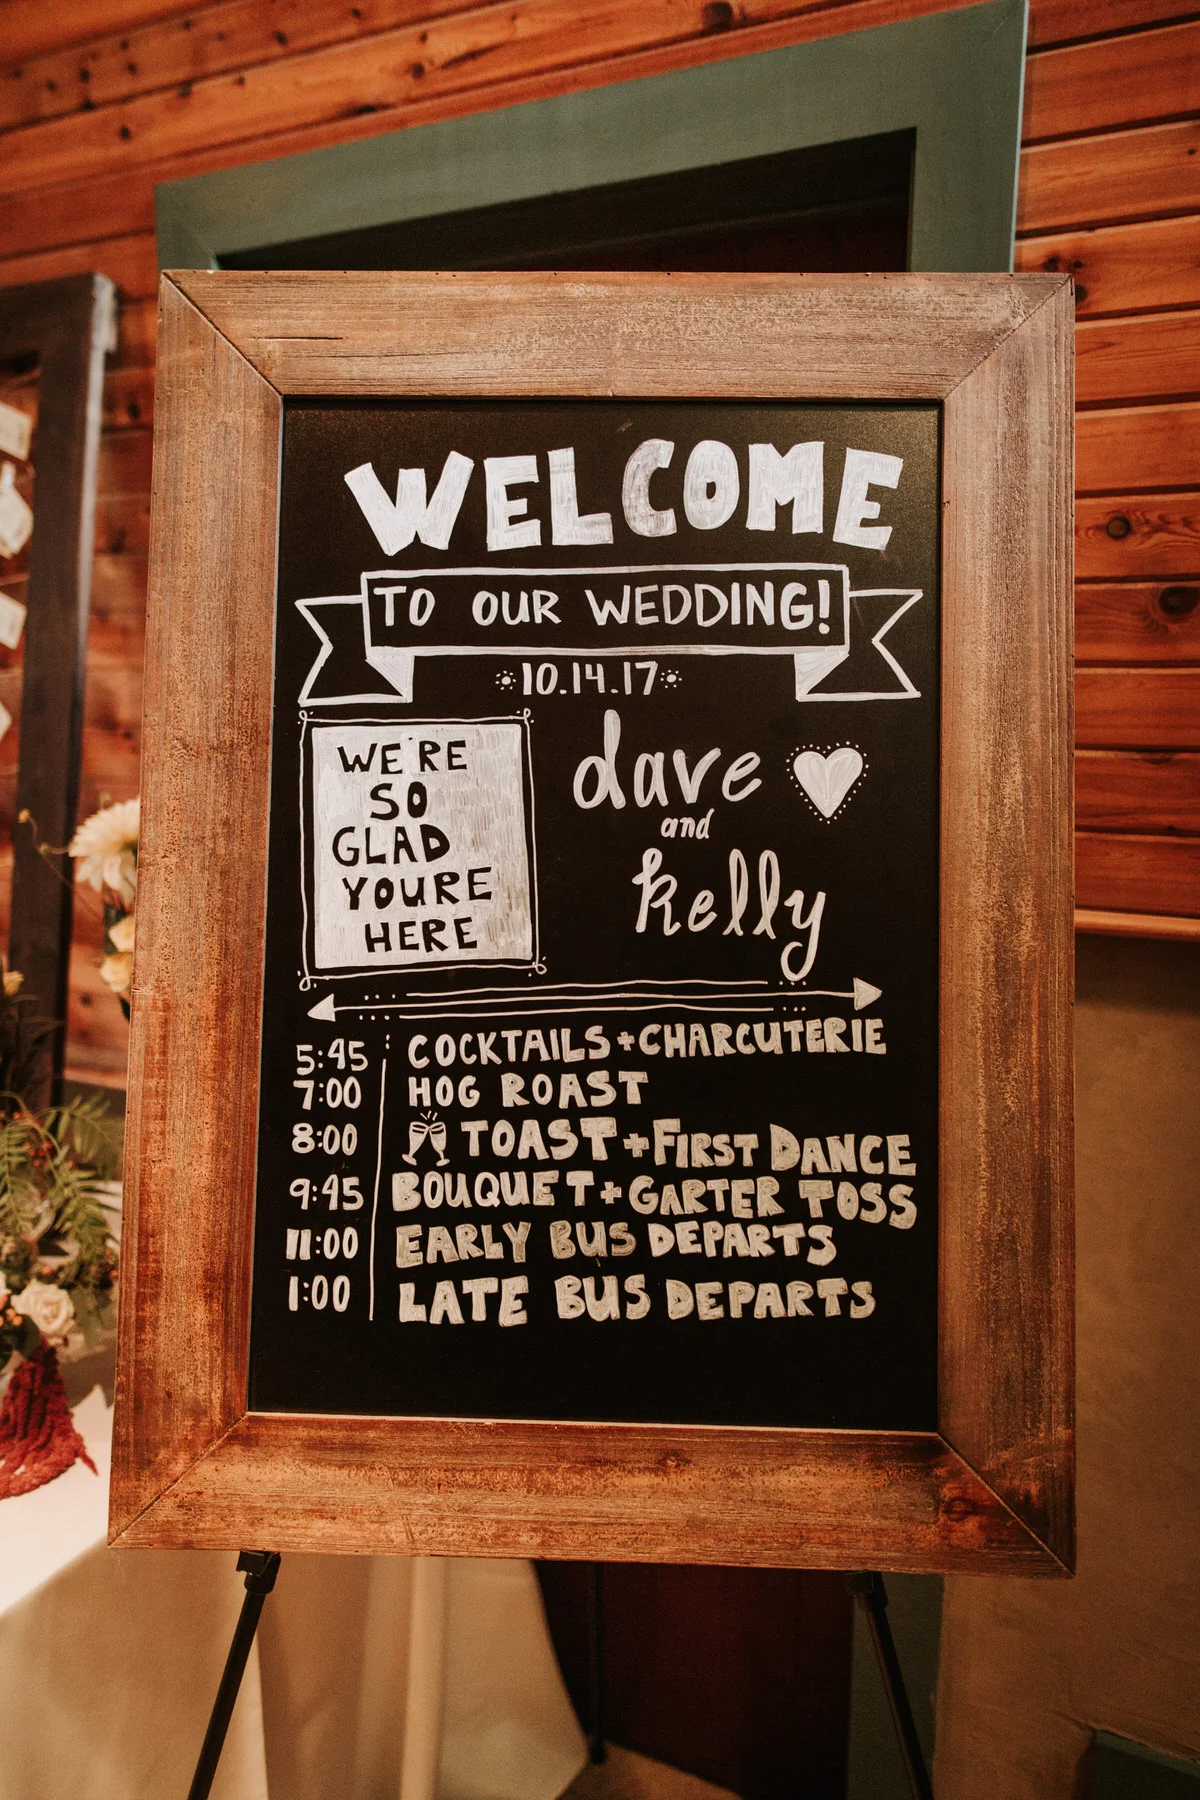 WELCOME
TO OUR WEDDING!
10.14.17
WE'RE
SO
GLAD
YOURE
HERE
dave
and
kelly
5:45 COCKTAILS + CHARCUTERIE
7:00 HOG ROAST
8:00 TOAST + FIRST DANCE
9:45 BOUQUET + GARTER TOSS
11:00 EARLY BUS DEPARTS
1:00 LATE BUS DEPARTS